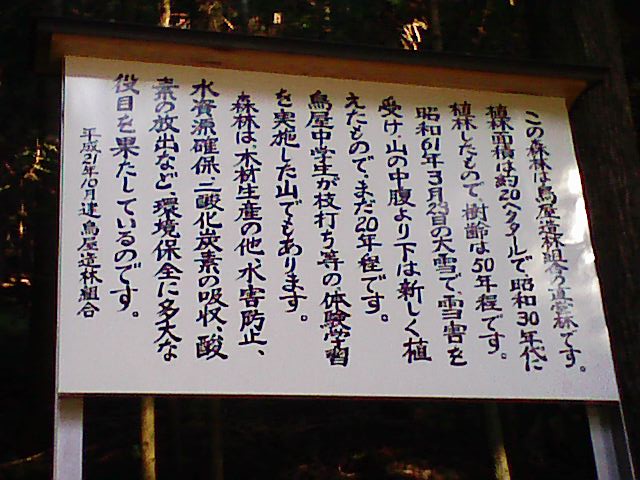 この森林は鳥屋造林組合の直営林です。
植林面積は約20ヘクタルで、昭和30年代に
植林したもので、樹齢は50年程です。
昭和61年3月23日の大雪で、雪害を
受け、山の中腹より下は新しく植
えたもので、まだ20年程です。
鳥屋中学生が枝打ち等の体験学習
を実施した山でもあります。
森林は、木材生産の他、水害防止、
水資源確保、二酸化炭素の吸収、酸
素の放出など、環境保全に多大な
役目を果たしているのです。
平成21年10月建 鳥屋造林組合